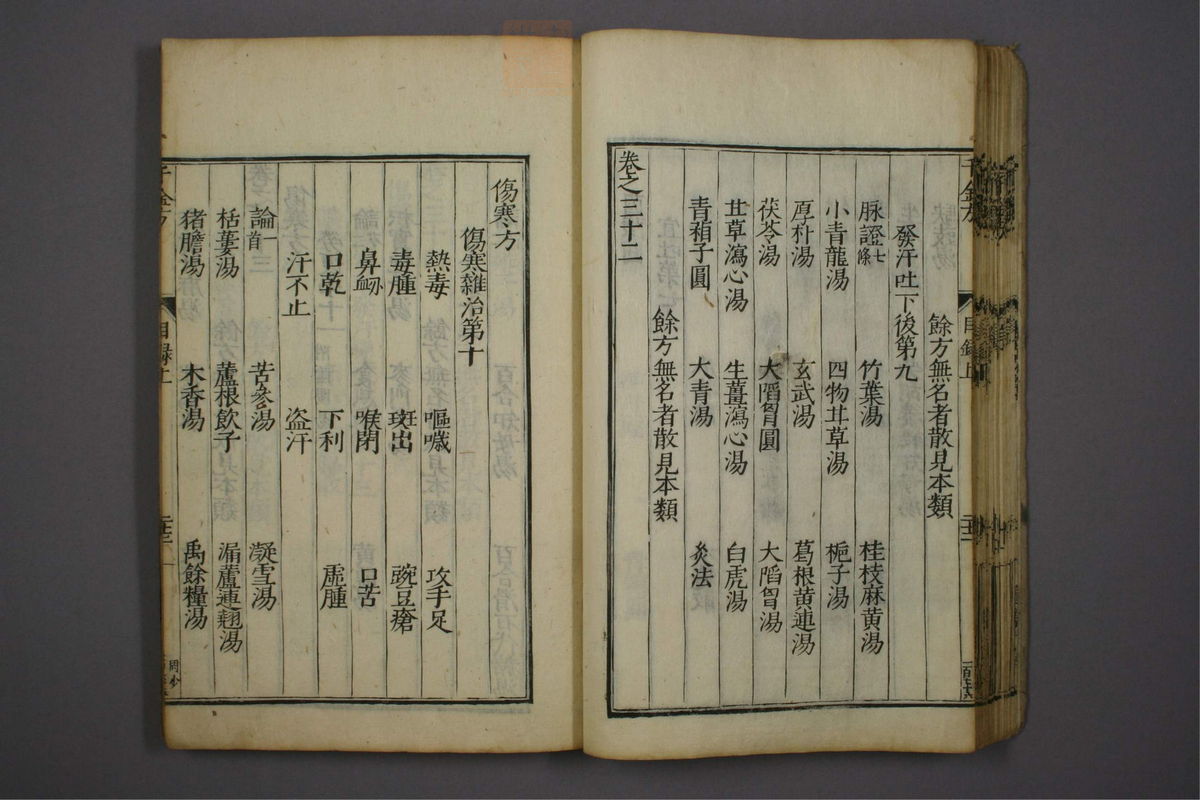 餘方無名者散見本類
發汗吐下後第九
脉證七條 竹葉湯 桂枝麻黄湯
小青龍湯 四物甘草湯 梔子湯
厚朴湯 玄武湯 葛根黄連湯
茯苓湯 大䧟胷圓 大䧟胷湯
甘草瀉心湯 生薑瀉心湯 白虎湯
青葙子圓 大青湯 灸法
餘方無名者散見本類
卷之三十二
傷寒方
傷寒雜治第十
熱毒 嘔噦 攻手足
毒腫 斑出 豌豆瘡
鼻衂 喉閉 口苦
口乾 下利 虛腫
汗不止 盗汗
論一首 苦參湯 凝雪湯
栝蔞湯 蘆根飲子 漏蘆連翹湯
猪膽湯 木香湯 禹餘糧湯
千金方 目録上